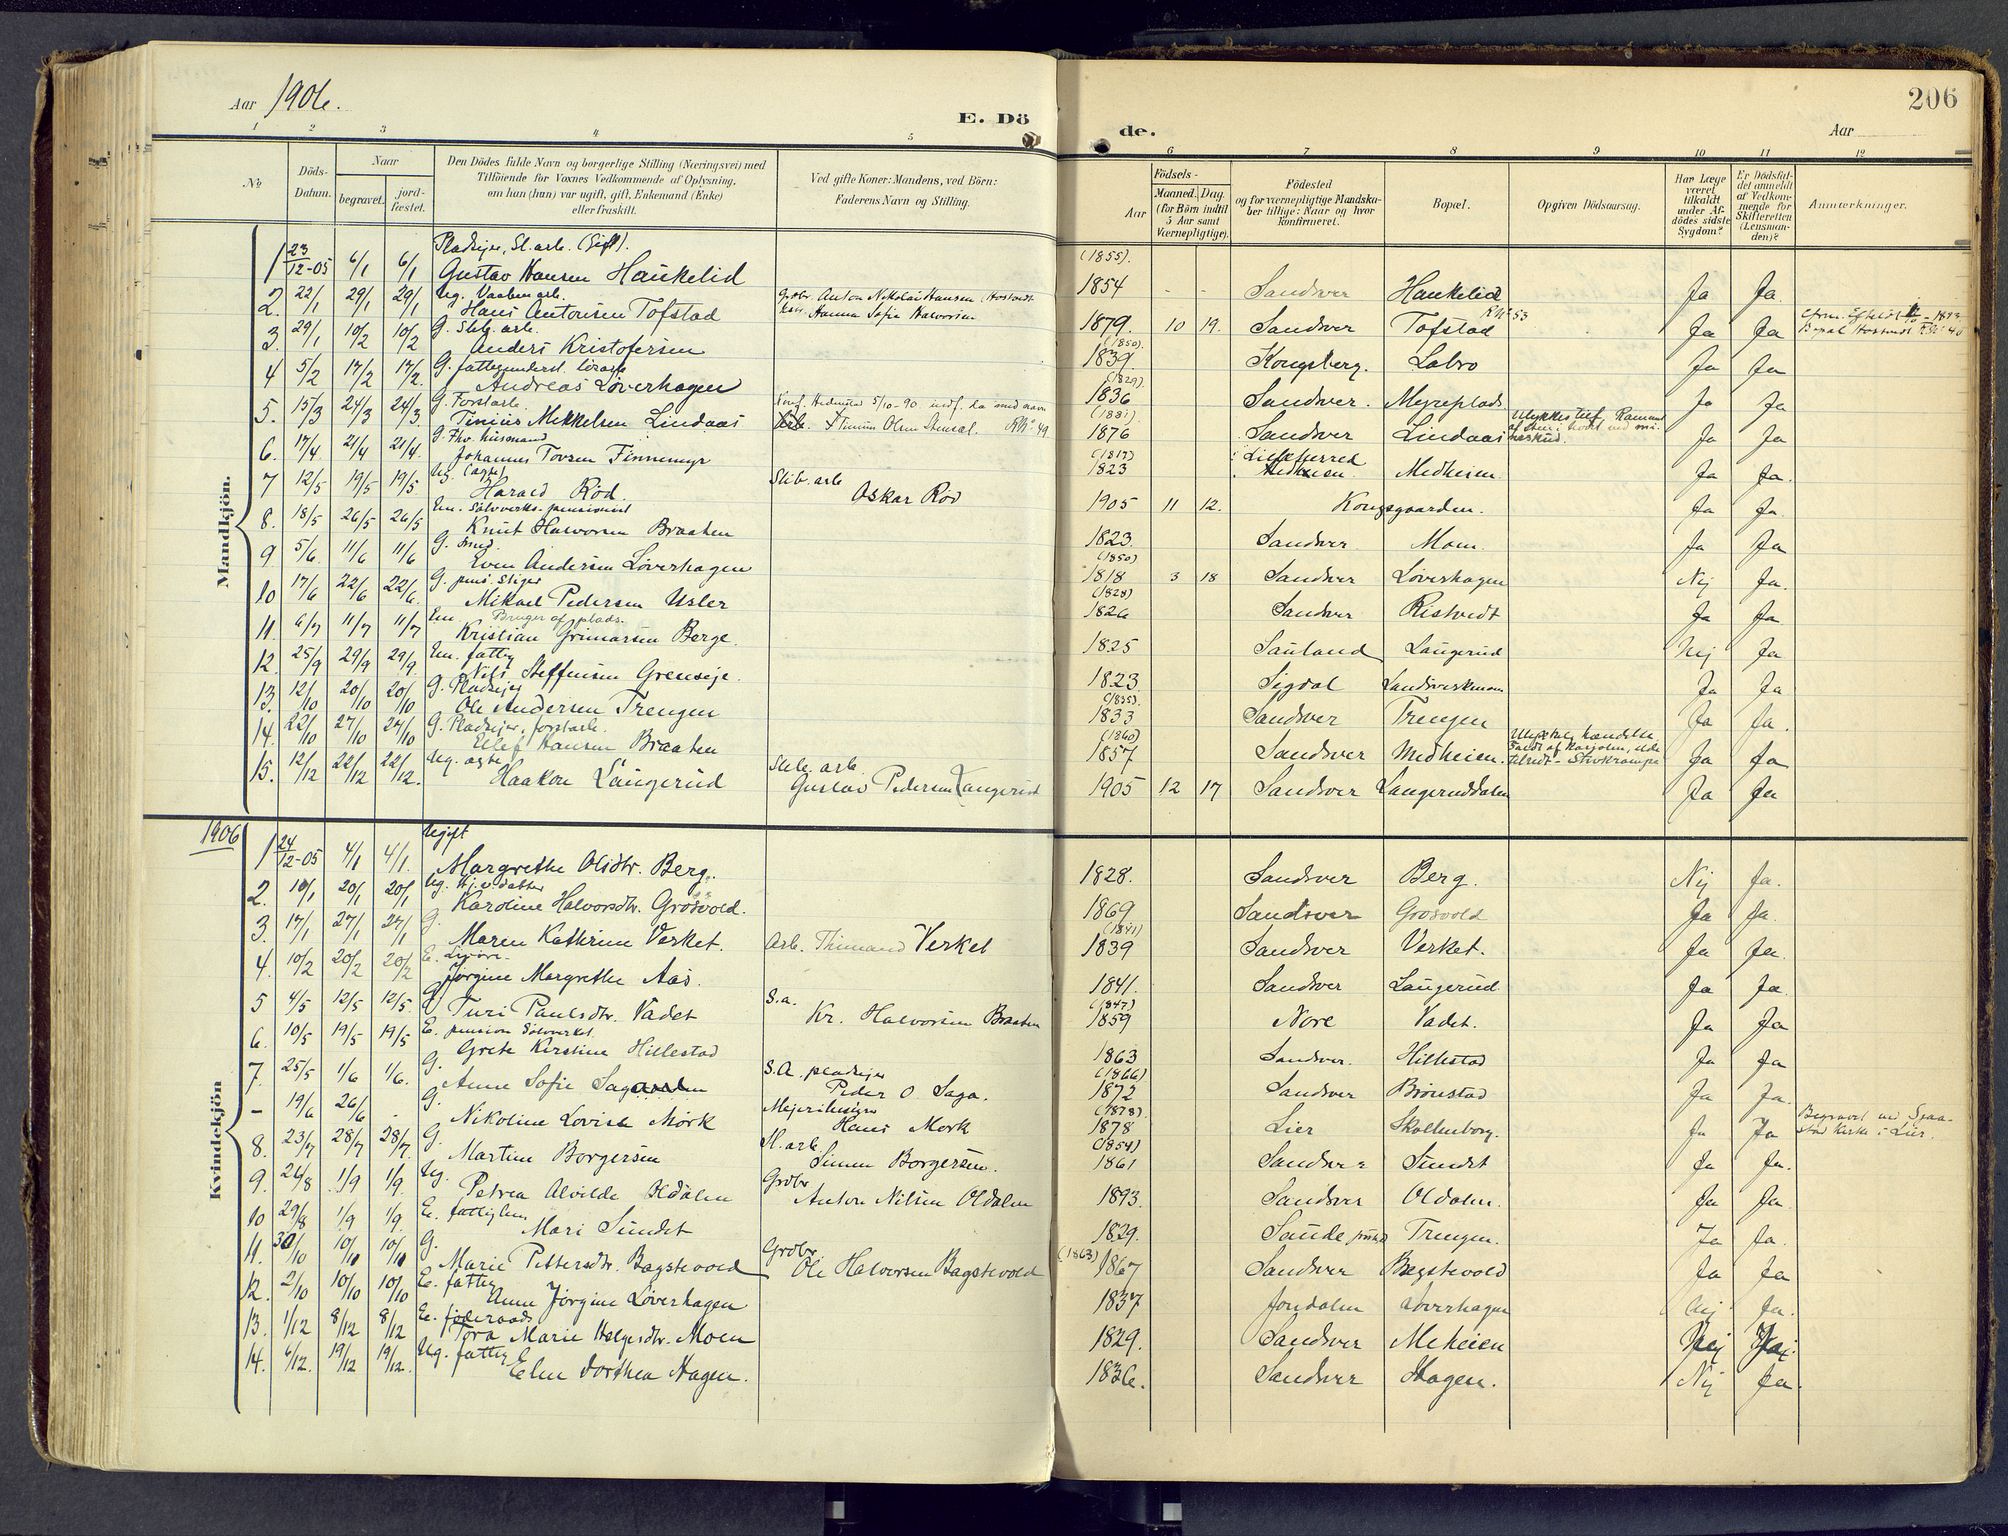 Aar 1906.
E. Dö de.
206
Aar
1 2 3 4 5 6 7 8 9 10 11 12
No
Döds-Datum.
Naar
begravet.
jord-fæstet.
Den Dödes fulde Navn og borgerlige Stilling (Næringsvei) med
Tilföiende for Voxnes Vedkommende af Oplysning,
om han (hun) var ugift, gift, Enkemand (Enke)
eller fraskilt.
Ved gifte Koner: Mandens, ved Börn:
Faderens Navn og Stilling.
Födsels-
Aar
Maaned. Dag.
(for Börn indtil
5 Aar samt
Værnepligtige).
Födested
og for værnepligtige Mandska-
ber tillige: Naar og hvor
konfirmeret.
Bopæl.
Opgiven Dödsaarsag.
Har Læge
været
tilkaldt
under Af-
dödes sidste
Sygdom?
Er Dödsfal-
det anmeldt
af Vedkom-
mende for
Skifteretten
(Lensman-
den)?
Anmærkninger.
Mandkjön.
Pladsejer, Sl. arb. (Gift). (1855).
1 23/12-05 6/1 6/1 Gustav Hansen Haukelid 1854 - - Sandsver Haukelid Ja Ja.
Ug. Vaabenarb. Grdbr. Anton Nikolai Hansen
2. 22/1 29/1 29/1 Hans Antonsen Tofstad Hanna Sofie Halvorsen 1879. 10 19. Sandsver Tofstad Ja Ja
G. Stbg. arb. (1850).
3. 29/1 10/2 10/2 Anders Kristofersen 1839. Kongsberg. Labro Ja Ja
G. fattigunderst. (1829).
4 5/2 17/2 17/2. Andreas Løverhagen 1836 Sandsver. Myreplads Ja Ja
G. Forstarb. 5/10-90
5. 15/3 24/3 24/3. Tinius Mekkelsen Lindaas Tinius Olsen 1876 Sandsver Lindaas Ja Ja
G. Fhv. husmand (1817)
6. 17/4 21/4 21/4. Johannes Tovsen Finnemyr 1823 Lilleherred Medheien. Ja Ja.
Ug. (ægte) Stib. arb
7 12/5 19/5 19/5 Harald Rød. Oskar Rød 1905 11 12. Kongsgaarden. Ja Ja.
Em. Sølvverks-pensionist
8. 18/5 26/5 26/5 Knut Halvorsen Braaten 1823. Sandsver Moen. Ja Ja
G. Smed. (1850)
9 5/6. 11/6 11/6 Even Andersen Løverhagen 1818 3 18 Sandsver Løverhagen Nej Ja.
G. pens. Stiger (1828)
10 17/6 22/6 22/6. Mikael Pedersen Usler 1826 Sandsver Ristvedt Ja Ja
Em. Bruger af plads.
11. 6/7 11/7 11/7 Kristian Gunnarsen Berge. 1825 Sauland Laugerud Nej Ja
Em. fattig
12. 25/9 29/9 29/9. Nils Steffensen Grenseje. 1823 Sigdal Landsverkmoen Ja Ja
G. Pladsejer (1835).
13. 12/10 20/10 20/10 Ole Andersen Trengen 1833 Sandsver Trengen Ja Ja.
G. Pladsejer, forstarb. (1860)
14. 22/10 27/10 27/10 Ellef Hansen Braaten 1857 Sandsver Medheien. Ja Ja
Ug. ægte Stib. arb.
15. 12/12 22/12 22/12. Haakon Laugerud Gustav Pedersen Laugerud 1905 12 17 Sandsver Laugeruddalen Ja Ja
1906
Kvindekjön
Ugift
1 24/12-05 4/1 4/1. Margrethe Olsdtr. Berg. 1828. Sandsver Berg. Nej Ja.
2. 10/1 20/1 20/1 Karoline Halvorsdtr. Grosvold. 1869 Sandsver Grosvold Ja Ja.
G. (1841)
3. 17/1 27/1 27/1 Maren Kathrine Verket. Arb. Thimand Verket 1839 Sandsver Verket. Ja Ja.
4. 10/2 20/2 20/2 Jørgine Margrethe Aas. 1841. Sandsver Laugerud Ja Ja.
G. S.a. (1847)
5 4/5 12/5 12/5. Turi Paulsdtr. Vadet Kr. Halvorsen Braaten 1859 Nore Vadet. Ja Ja
E. pension Sølvverket.
6. 10/5 19/5 19/5 Grete Kirstine Hillestad 1863 Sandsver. Hillestad Ja Ja
G. S.A. pladsejer (1866)
7. 25/5 1/6 1/6. Anne Sofie Sagaarden Peder O Saga. 1872 Sandsver Brønstad Ja Ja.
G. Mejeribestyrer (1878).
- 19/6 26/6 - Nikoline Lovise Mørk Hans Mørk 1878 Lier Skollenborg. Ja Ja Begravet ved Sjaa-
stad Kirke i Lier.
G. Sl. arb. (1854)
8. 23/7 28/7 28/7. Martine Borgersen Simen Borgersen. 1861 Sandsver Sundet Ja Ja.
Ug. Grdbr
9. 26/8 1/9 1/9. Petrea Alvilde Oldalen Anton Nilsen Oldalen 1893. Sandsver Oldalen. Ja Ja.
E. fattiglem
10 29/8 1/9 1/9. Mari Sundet 1829. Saude Trengen. Ja Ja.
G. Grdbr. (1863)
11. 30/10 10/10 10/10 Marie Pettersdtr. Bagstevold Ole Halvorsen Bagstevold 1867 Sandsver Bagstevold Ja Ja
E. fattig
12. 2/10 10/10 10/10 Anne Jørgine Løverhagen 1837 Jondalen Løverhagen Nej Ja.
E. føderaads
13. 1/12 8/12 8/12 Tora Marie Helgesdtr. Moen 1829. Sandsver Meheien Nej
Ug. fattig
14. 6/12. 19/12 19/12. Elen Dorthea Hagen. 1836. Sandsver Hagen. Nej Ja.